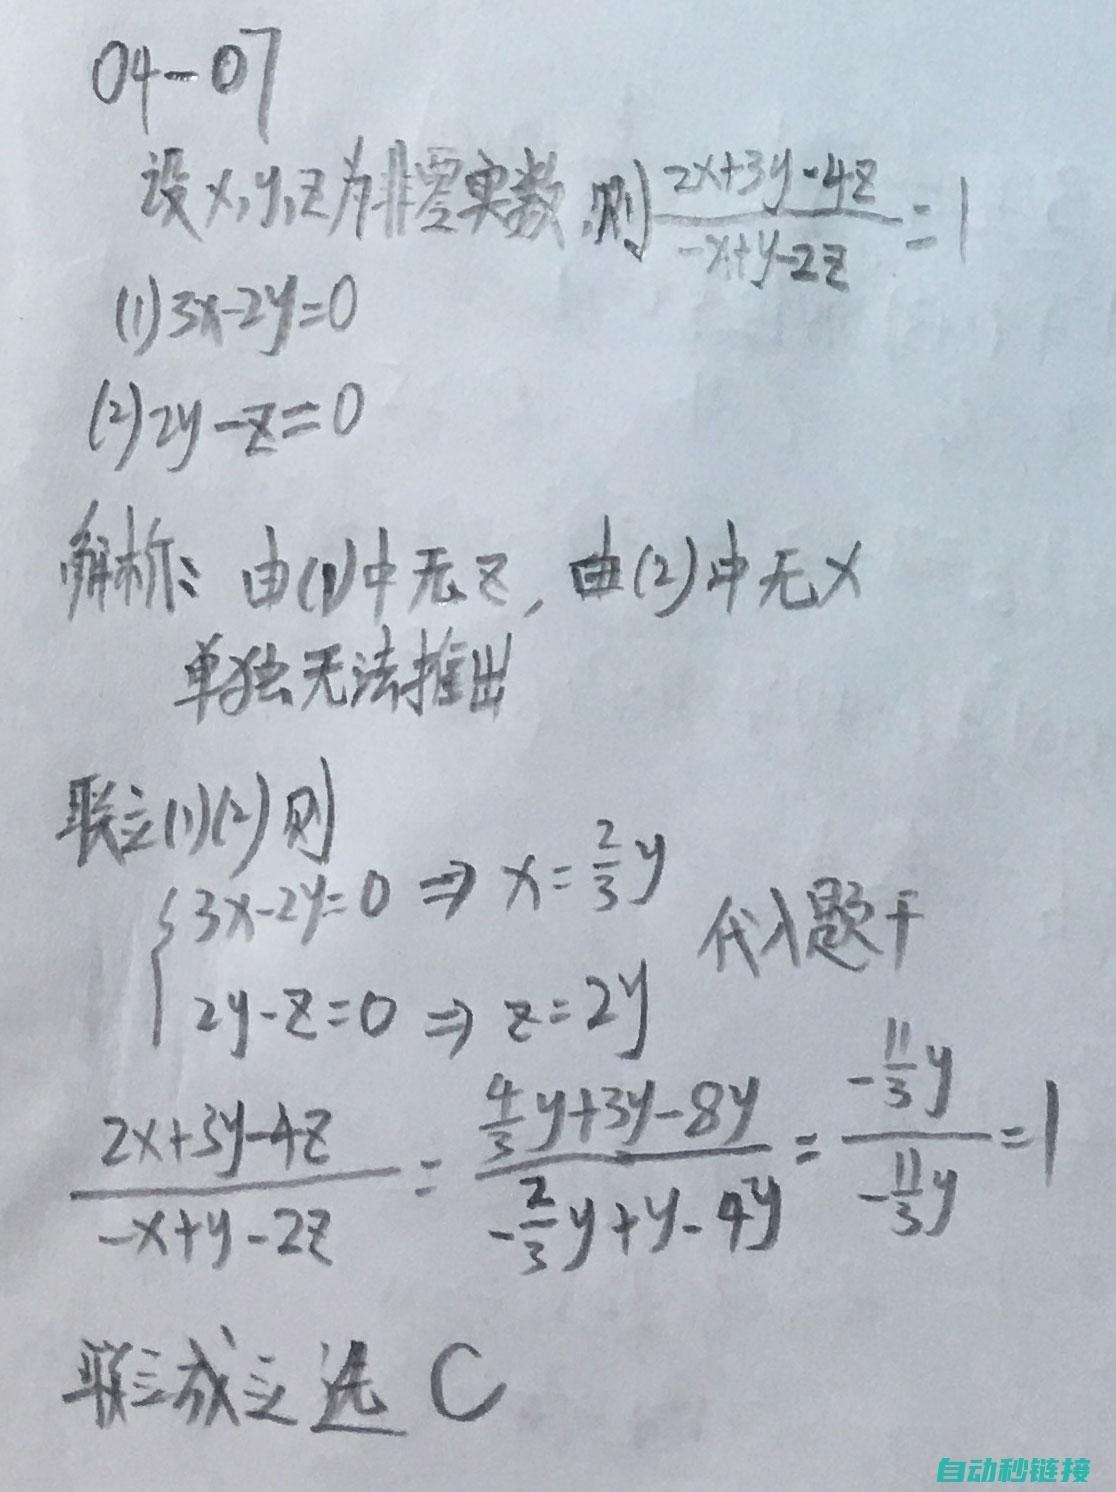 04-07
设x,y,z为非零实数,则 (2x+3y-4z)/(-x+y-2z) = 1
(1) 3x-2y=0
(2) 2y-z=0
解析: 由(1)中无z, 由(2)中无x
单独无法推出
联立(1)(2)则
{3x-2y=0 ⇒ x=2/3y
代入题干
2y-z=0 ⇒ z=2y
(2x+3y-4z)/(-x+y-2z) = (4/3y+3y-8y)/(-2/3y+y-4y) = (-11/3y)/(-11/3y) = 1
联立成立选 C
自动秒链接